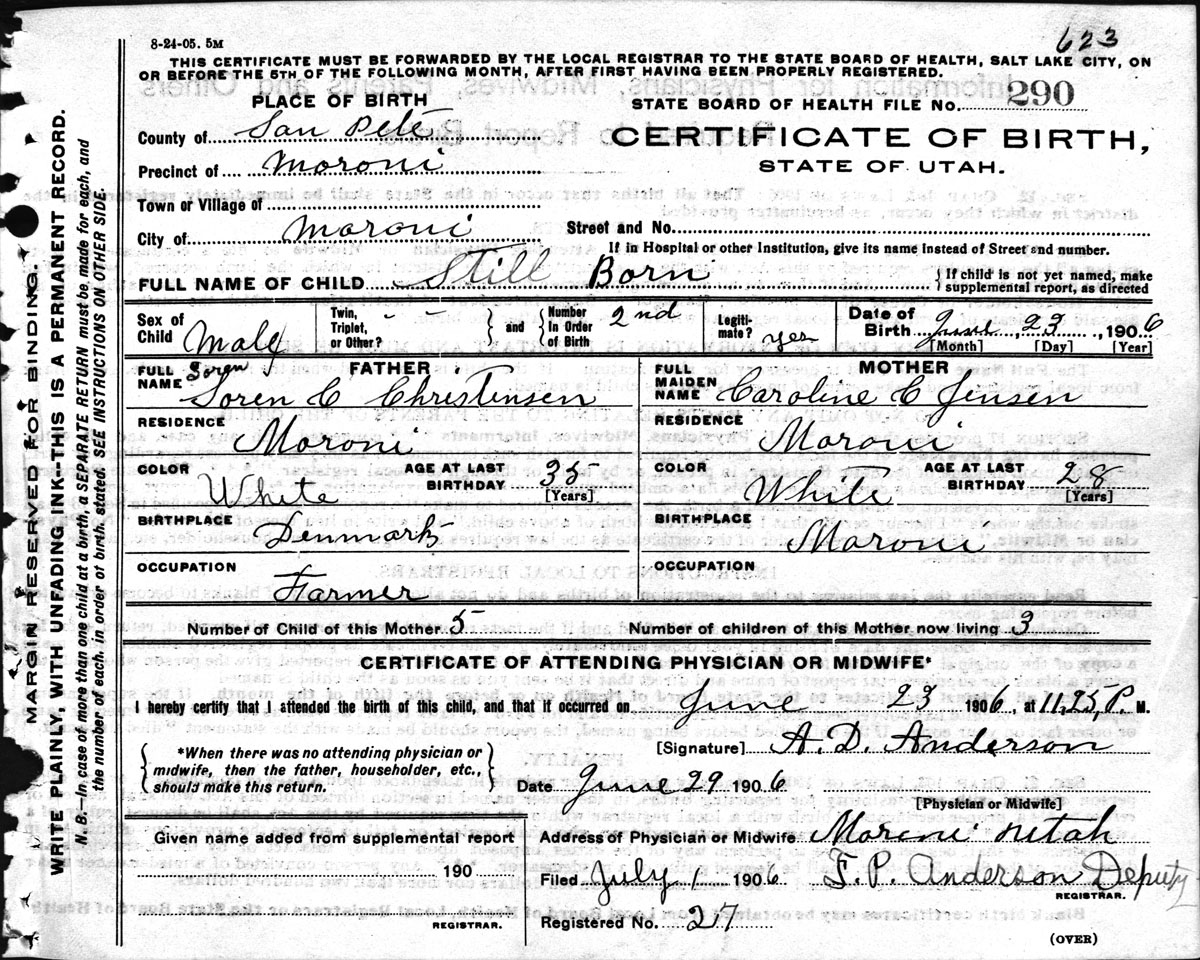 8-24-05. 5M
623
THIS CERTIFICATE MUST BE FORWARDED BY THE LOCAL REGISTRAR TO THE STATE BOARD OF HEALTH, SALT LAKE CITY, ON
OR BEFORE THE 5TH OF THE FOLLOWING MONTH, AFTER FIRST HAVING BEEN PROPERLY REGISTERED.
PLACE OF BIRTH
STATE BOARD OF HEALTH FILE No. 290
County of San Pete
CERTIFICATE OF BIRTH,
Precinct of Moroni
STATE OF UTAH.
Town or Village of
City of Moroni Street and No.
If in Hospital or other Institution, give its name instead of Street and number.
FULL NAME OF CHILD Still Born { If child is not yet named, make supplemental report, as directed
Sex of Child Male Twin, Triplet, or Other? - - } and { Number In Order of Birth 2nd Legiti-mate? yes Date of Birth June, 23, 1906
[Month] [Day] [Year]
FULL NAME FATHER Soren
Soren C Christensen
FULL MAIDEN NAME MOTHER
Caroline C Jensen
RESIDENCE Moroni
RESIDENCE Moroni
COLOR White AGE AT LAST BIRTHDAY 35 [Years]
COLOR White AGE AT LAST BIRTHDAY 28 [Years]
BIRTHPLACE Denmark
BIRTHPLACE Moroni
OCCUPATION Farmer
OCCUPATION
Number of Child of this Mother 5 Number of children of this Mother now living 3
CERTIFICATE OF ATTENDING PHYSICIAN OR MIDWIFE*
I hereby certify that I attended the birth of this child, and that it occurred on June 23 1906, at 11,25, P. M.
{ *When there was no attending physician or midwife, then the father, householder, etc., should make this return. }
[Signature] A. D. Anderson
Date June 29 1906
[Physician or Midwife]
Given name added from supplemental report
190
REGISTRAR.
Address of Physician or Midwife Moroni Utah
Filed July 1 1906 F. P. Anderson Deputy
REGISTRAR.
Registered No. 27
(OVER)
MARGIN RESERVED FOR BINDING.
WRITE PLAINLY, WITH UNFADING INK--THIS IS A PERMANENT RECORD.
N. B.--In case of more than one child at a birth, a SEPARATE RETURN must be made for each, and
the number of each, in order of birth, stated. SEE INSTRUCTIONS ON OTHER SIDE.